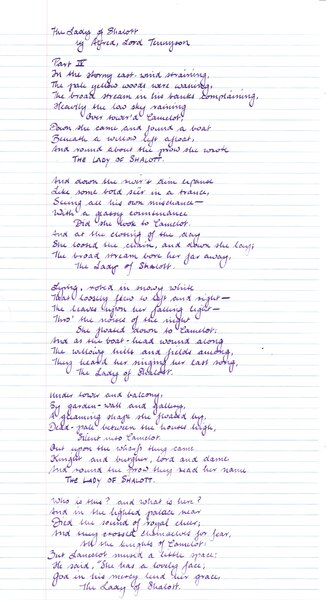 The Lady of Shalott
by Alfred, Lord Tennyson
Part IV
In the stormy east-wind straining,
The pale yellow woods were waning,
The broad stream in his banks complaining,
Heavily the low sky raining
Over tower'd Camelot;
Down she came and found a boat
Beneath a willow left afloat,
And round about the prow she wrote
THE LADY OF SHALOTT.
And down the river's dim expanse
Like some bold seër in a trance,
Seeing all his own mischance—
With a glassy countenance
Did she look to Camelot.
And at the closing of the day
She loosed the chain, and down she lay;
The broad stream bore her far away,
The Lady of Shalott.
Lying, robed in snowy white
That loosely flew to left and right—
The leaves upon her falling light—
Thro' the noises of the night
She floated down to Camelot:
And as the boat-head wound along
The willowy hills and fields among,
They heard her singing her last song,
The Lady of Shalott.
Under tower and balcony,
By garden-wall and gallery,
A gleaming shape she floated by,
Dead-pale between the houses high,
Silent into Camelot.
Out upon the wharfs they came
Knight and burgher, lord and dame
And round the prow they read her name
THE LADY OF SHALOTT.
Who is this? and what is here?
And in the lighted palace near
Died the sound of royal cheer;
And they crossed themselves for fear,
All the knights of Camelot:
But Lancelot mused a little space;
He said, "She has a lovely face;
God in his mercy lend her grace,
The Lady of Shalott.